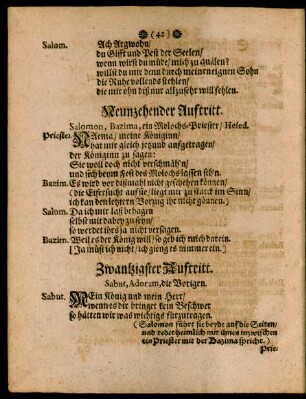 (42)
Salom. Ach Argwohn/
du Gifft und Pest der Seelen/
wenn wirst du müde/ mich zu quälen?
willst du mir denn durch meinen eignen Sohn
die Ruhe vollends stehlen/
die mir ohn diß nur allzusehr will fehlen.
Neunzehender Auftritt.
Salomon, Bazima, ein Molochs-Priester/ Hesed.
Priester. NAema/ meine Königinn/
hat mir gleich jetzund aufgetragen/
der Königinn zu sagen:
Sie woll doch nicht verschmäh'n/
und sich beym Fest des Molochs lassen seh'n.
Bazim. Es wird vor dißmahl nicht geschehen können/
( die Eifersucht auf sie/ liegt mir zu starck im Sinn/
ich kan den letztern Vorzug ihr nicht gönnen.)
Salom. Da ich mir laß behagen
selbst mit dabey zu seyn/
so werdet ihrs ja nicht versagen.
Bazim. Weil es der König will/ so geb ich mich darein.
[ Ja müst ich nicht/ ich gieng es nimmer ein.]
Zwantzigster Auftritt.
Sabut, Adoram, die Vorigen.
Sabut. MEin König und mein Herr/
wenn es dir bringet kein Beschwer
so hätten wir was wichtigs fürzutragen.
(Salomon führt sie beyde auf die Seiten/
und redet heimlich mit ihnen inzwischen
ein Priester mit der Bazima spricht.)
Prie-